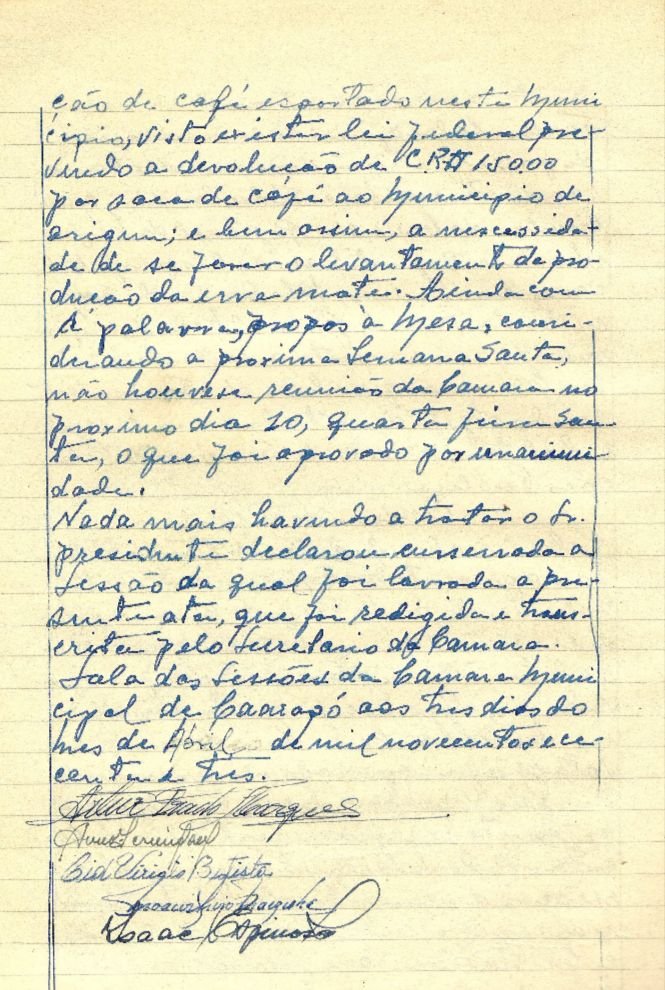 ção de café exportado neste Muni
cipio, visto existir lei federal pre-
vendo a devolução de CR$ 150.00
por saca de café ao Municipio de
origem; e bem assim, a nescessida-
de de se fazer o levantamento da pro-
dução da erva mate. Ainda com
a palavra, propos à Mesa, consi-
derando a proxima Semana Santa,
não houvese reunião da Camara no
proximo dia 10, quarta feira San
ta, o que foi aprovado por unanimi-
dade.
Nada mais havendo a tratar o Sr.
presidente declarou encerrada a
Sessão da qual foi lavrada a pre-
sente ata, que foi redigida e trans-
crita pelo Secretario da Camara.
Sala das Sessões da Camara Muni
cipal de Caarapó aos tres dias do
mes de Abril de mil novecentos e se-
centa e três.
Artur Prado Marques
Cid Virigio Batista
Isaac Espinosa